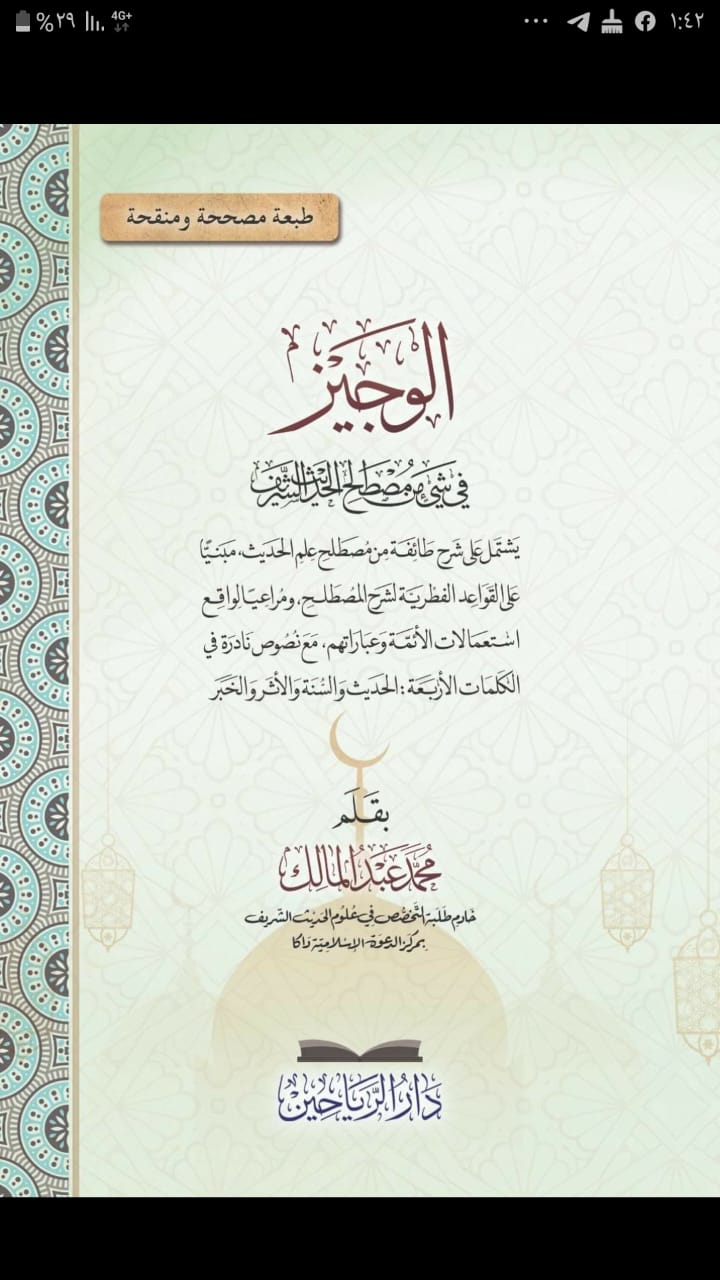 %٢٩ 4G+ ... ١:٤٢
طبعة مصححة ومنقحة
الوَجِيْز
في شَيْءٍ مِنْ مُصْطَلَحِ الْحَدِيْثِ الشَّرِيْف
يَشتَمل عَلى شَرح طَائِفَة مِن مُصطَلح عِلم الحَديث، مَبنيًّا
عَلى القَوَاعد الفطريَة لشَرح المُصْطَلح، ومُراعيًا لواقع
استعمالات الأئمَّة وَعبَاراتهم، مَعَ نصُوص نَادرَة في
الكَلمَات الأربَعَة: الحَديث وَالسُّنة وَالأثر وَالخَبَر
بقَلَم
مُحَمَّد عَبْدُ المَالِك
خَادم طَلَبَة التَّخصُّص في عُلوُم الحَديث الشَّريف
بمركَز الدعوَة الإسْلاميَّة دَاكا
دَارُ الرَّيَاحِيْن